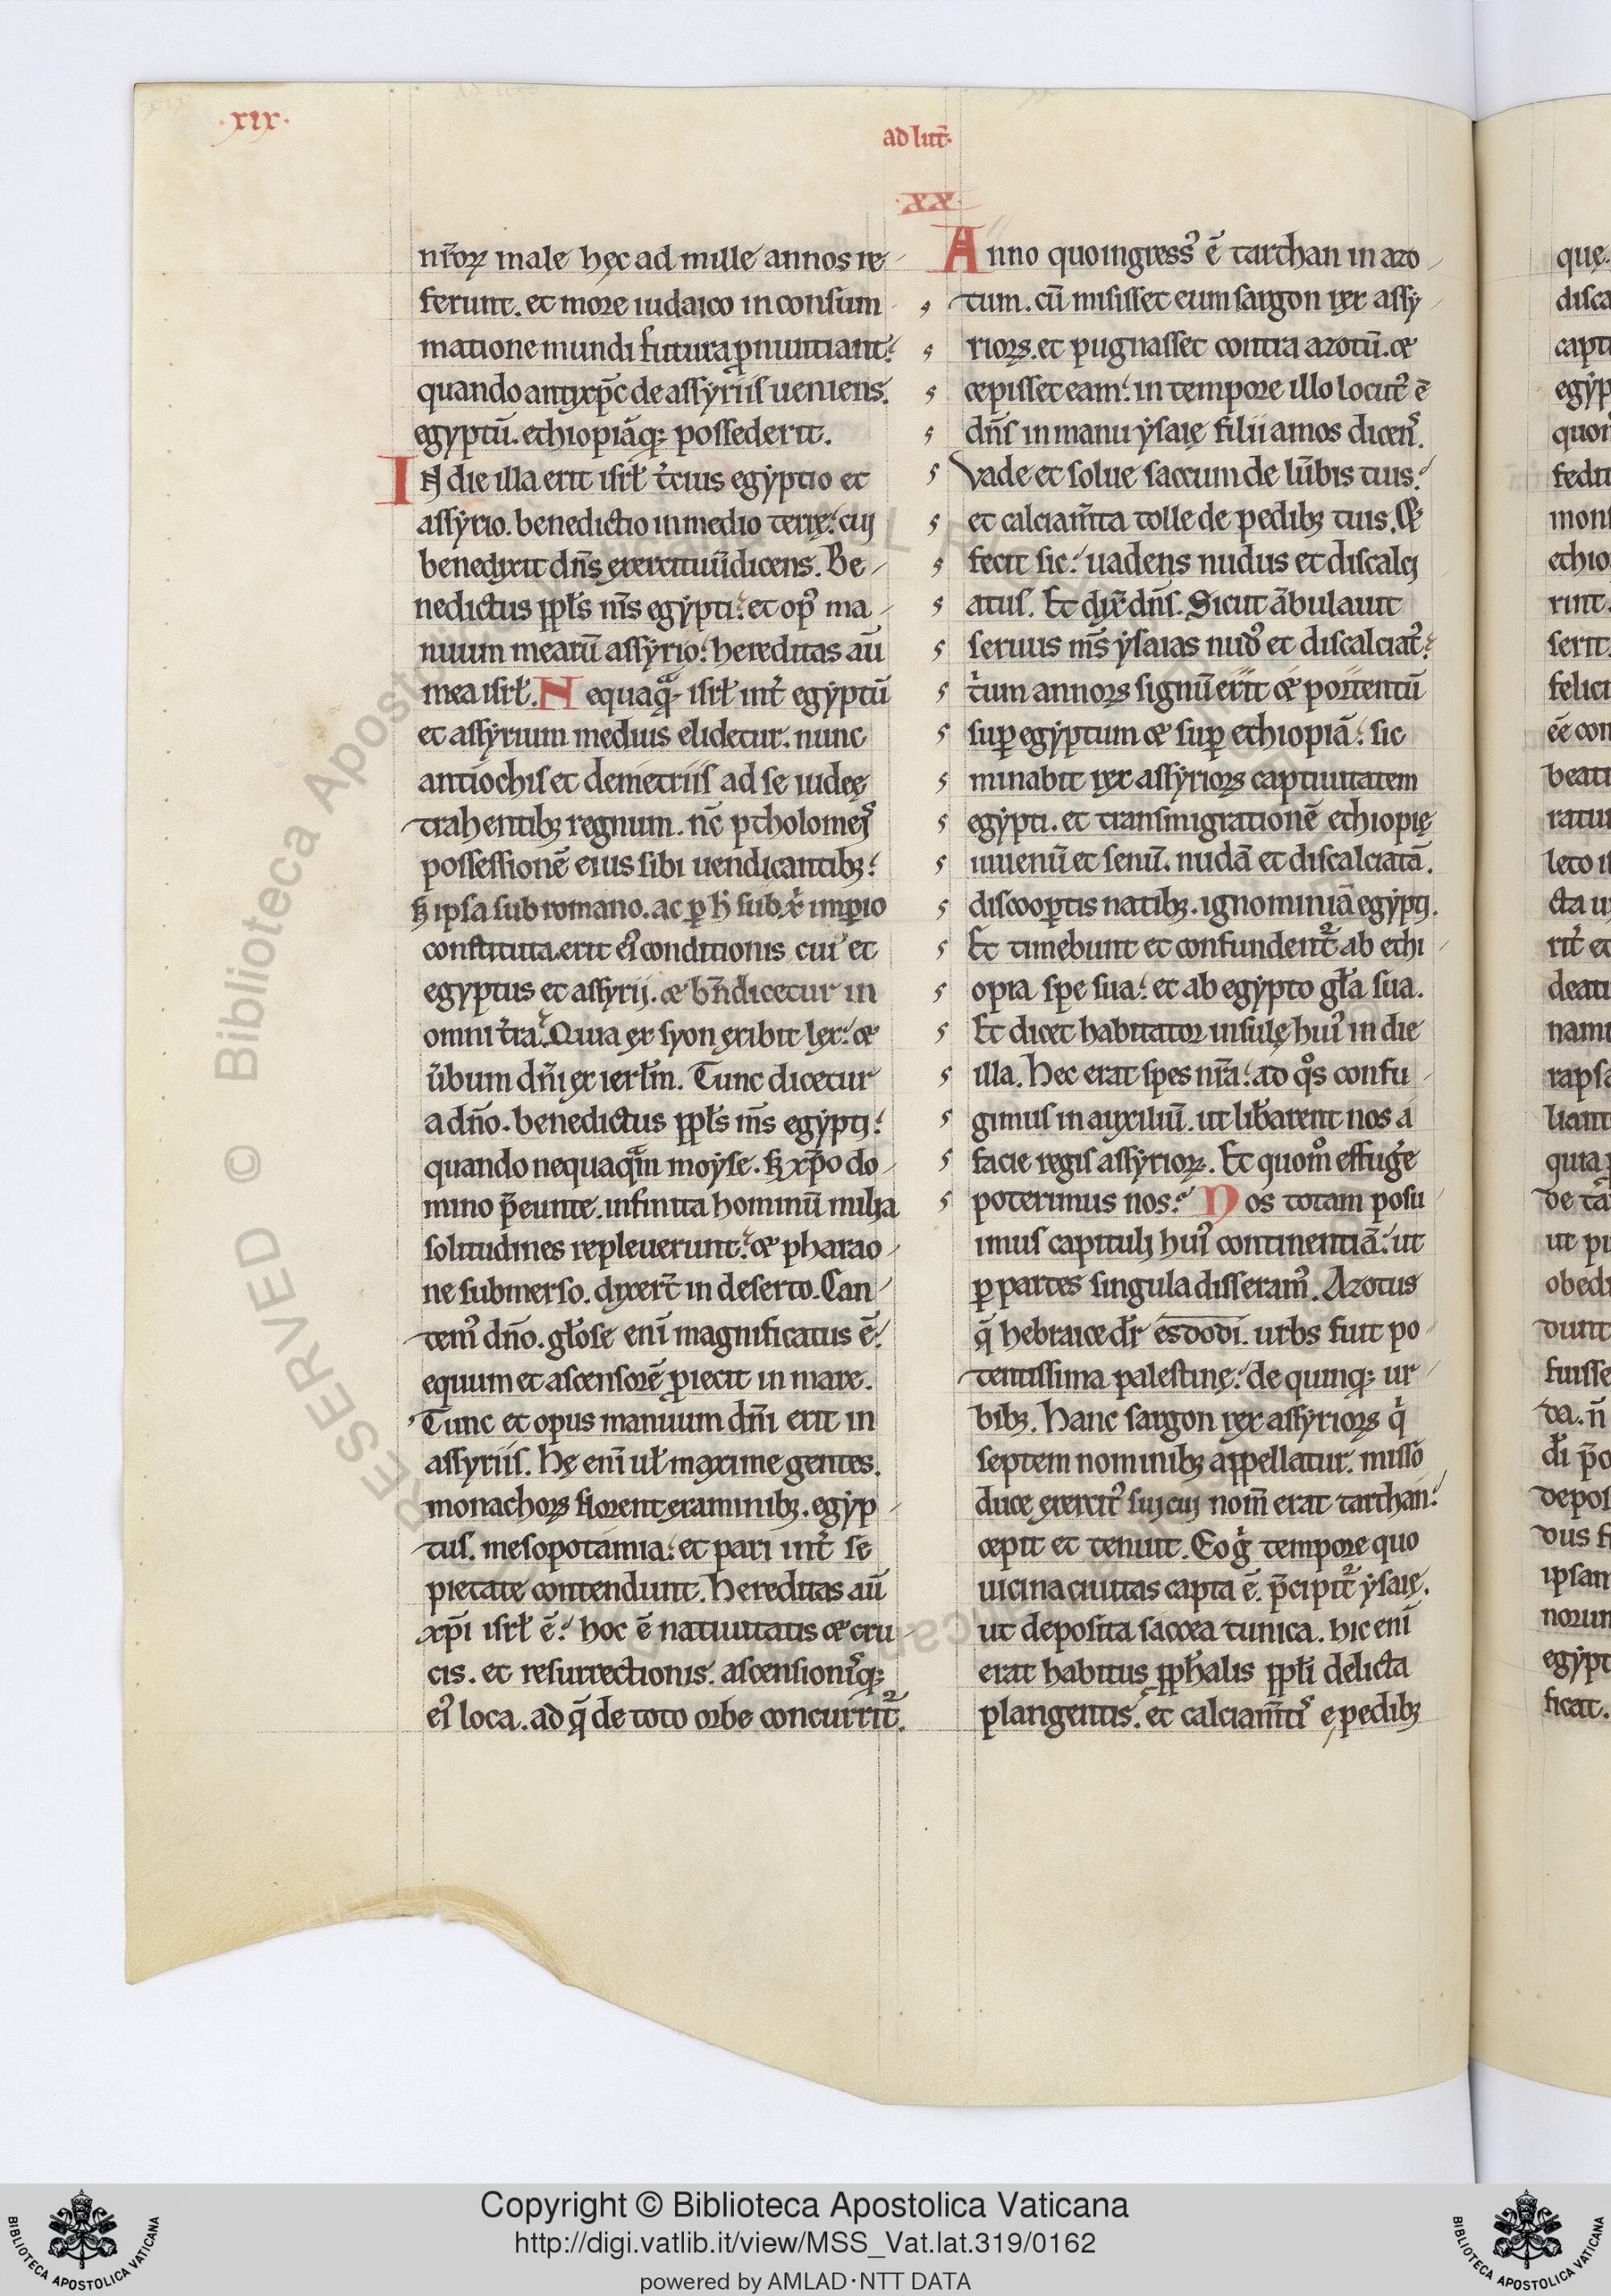 ·xix·
ad litt̄·
·xx·
nr̄oꝝ male hęc ad mille annos re-
ferunt. et more iudaico in consum-
matione mundi futura ꝓnuntiant.
quando antixp̄c de assyriis ueniens.
egyptū. ethiopiāq; possederit.
IN die illa erit isrł t̄cius egyptio et
assyrio. benedictio in medio terrę. cui
benedixit dn̄s exercituū dicens. Be-
nedictus ppłs ms̄ egypti. et op᾽ ma-
nuum mearū assyrio. hereditas aū
mea isrł. Nequaqᵃ isrł int̄ egyptū
et assyrium medius elidetur. nunc
antiochis et demetriis ad se iudeę
trahentibꝫ regnum. nc̄ ptholomeis
possessionē eius sibi uendicantibꝫ.
sꝫ ipsa sub romano. ac ꝑ h̄ sub xr̄ imꝑio
constituta. erit ei᾽ conditionis cui᾽ et
egyptus et assyrii. et bn̄dicetur in
omni t̄ra. Quia ex syon exibit lex. et
ūbum dn̄i ex ierłm. Tunc dicetur
a dn̄o. benedictus ppłs ms̄ egypti.
quando nequaqᵃm moyse. sꝫ xp̄o do-
mino p̄eunte. infinita hominū milia
solitudines repleuerunt. et pharao-
ne submerso. dixert̄ in deserto. Can-
tem᾽ dn̄o. głose eni᾽ magnificatus ē.
equum et ascensorē ꝓiecit in mare.
Tunc et opus manuum dn̄i erit in
assyriis. Hę eni᾽ uł maxime gentes.
monachoꝝ florent examinibꝫ. egyp-
tus. mesopotamia. et pari int̄ se
pietate contendunt. Hereditas aū
xp̄i isrł ē. hoc ē natiuitatis et cru-
cis. et resurrectionis. ascensionisq;
ei᾽ loca. ad q̄ de toto orbe concurrit᾽.
Anno quo ingress᾽ ē tarthan in azo-
tum. cū misisset eum sargon rex assy-
rioꝝ. et pugnasset contra azotū. et
cepisset eam. in tempore illo locut᾽ ē
dn̄s in manu ysaię filii amos dicens.
Vade et solue saccum de lūbis tuis.
et calciam̄ta tolle de pedibꝫ tuis. Et
fecit sic. uadens nudus et discalci-
atus. Et dix̄ dn̄s. Sicut ābulauit
seruus ms̄ ysaias nud᾽ et discalciat᾽.
t̄um annoꝝ signū erit et portentū
suꝑ egyptum et suꝑ ethiopiā. sic
minabit rex assyrioꝝ captiuitatem
egypti. et transmigrationē ethiopię
iuuenū et senū. nudā et discalciatā.
discooꝑtis natibꝫ. ignominiā egypti.
Et timebunt et confundent᾽ ab ethi-
opia spe sua. et ab egypto gła sua.
Et dicet habitator insulę hui᾽ in die
illa. Hec erat spes nr̄a. ad qᵒs confu-
gimus in auxiliū. ut lib̄arent nos a
facie regis assyrioꝝ. Et quomᵒ effuḡe
poterimus nos. Nos totam posu-
imus capituli hui᾽ continentiā. ut
ꝑ partes singula disseram᾽. Azotus
q̄ hebraice dr̄ esdodi. urbs fuit po-
tentissima palestinę. de quinq; ur-
bibꝫ. Hanc sargon rex assyrioꝝ qⁱ
septem nominibꝫ appellatur. misso
duce exercit᾽ sui cui nom̄ erat tarthan.
cepit et tenuit. Eo gͥ tempore quo
uicina ciuitas capta ē. p̄cipit᾽ ysaię.
ut deposita saccea tunica. hic eni᾽
erat habitus pph̄alis ppłi delicta
plangentis. et calciam̄tis e pedibꝫ
Copyright © Biblioteca Apostolica Vaticana
http://digi.vatlib.it/view/MSS_Vat.lat.319/0162
powered by AMLAD·NTT DATA